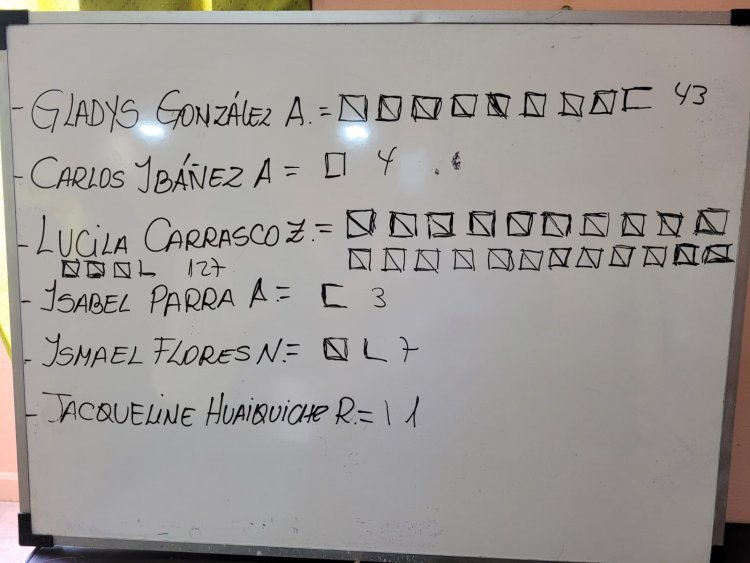 - GLADYS GONZÁLEZ A. = 43
- CARLOS IBÁÑEZ A = 4
- LUCILA CARRASCO Z. =
127
- ISABEL PARRA A = 3
- ISMAEL FLORES N. = 7
- JACQUELINE HUAIQUICHE R. = 1